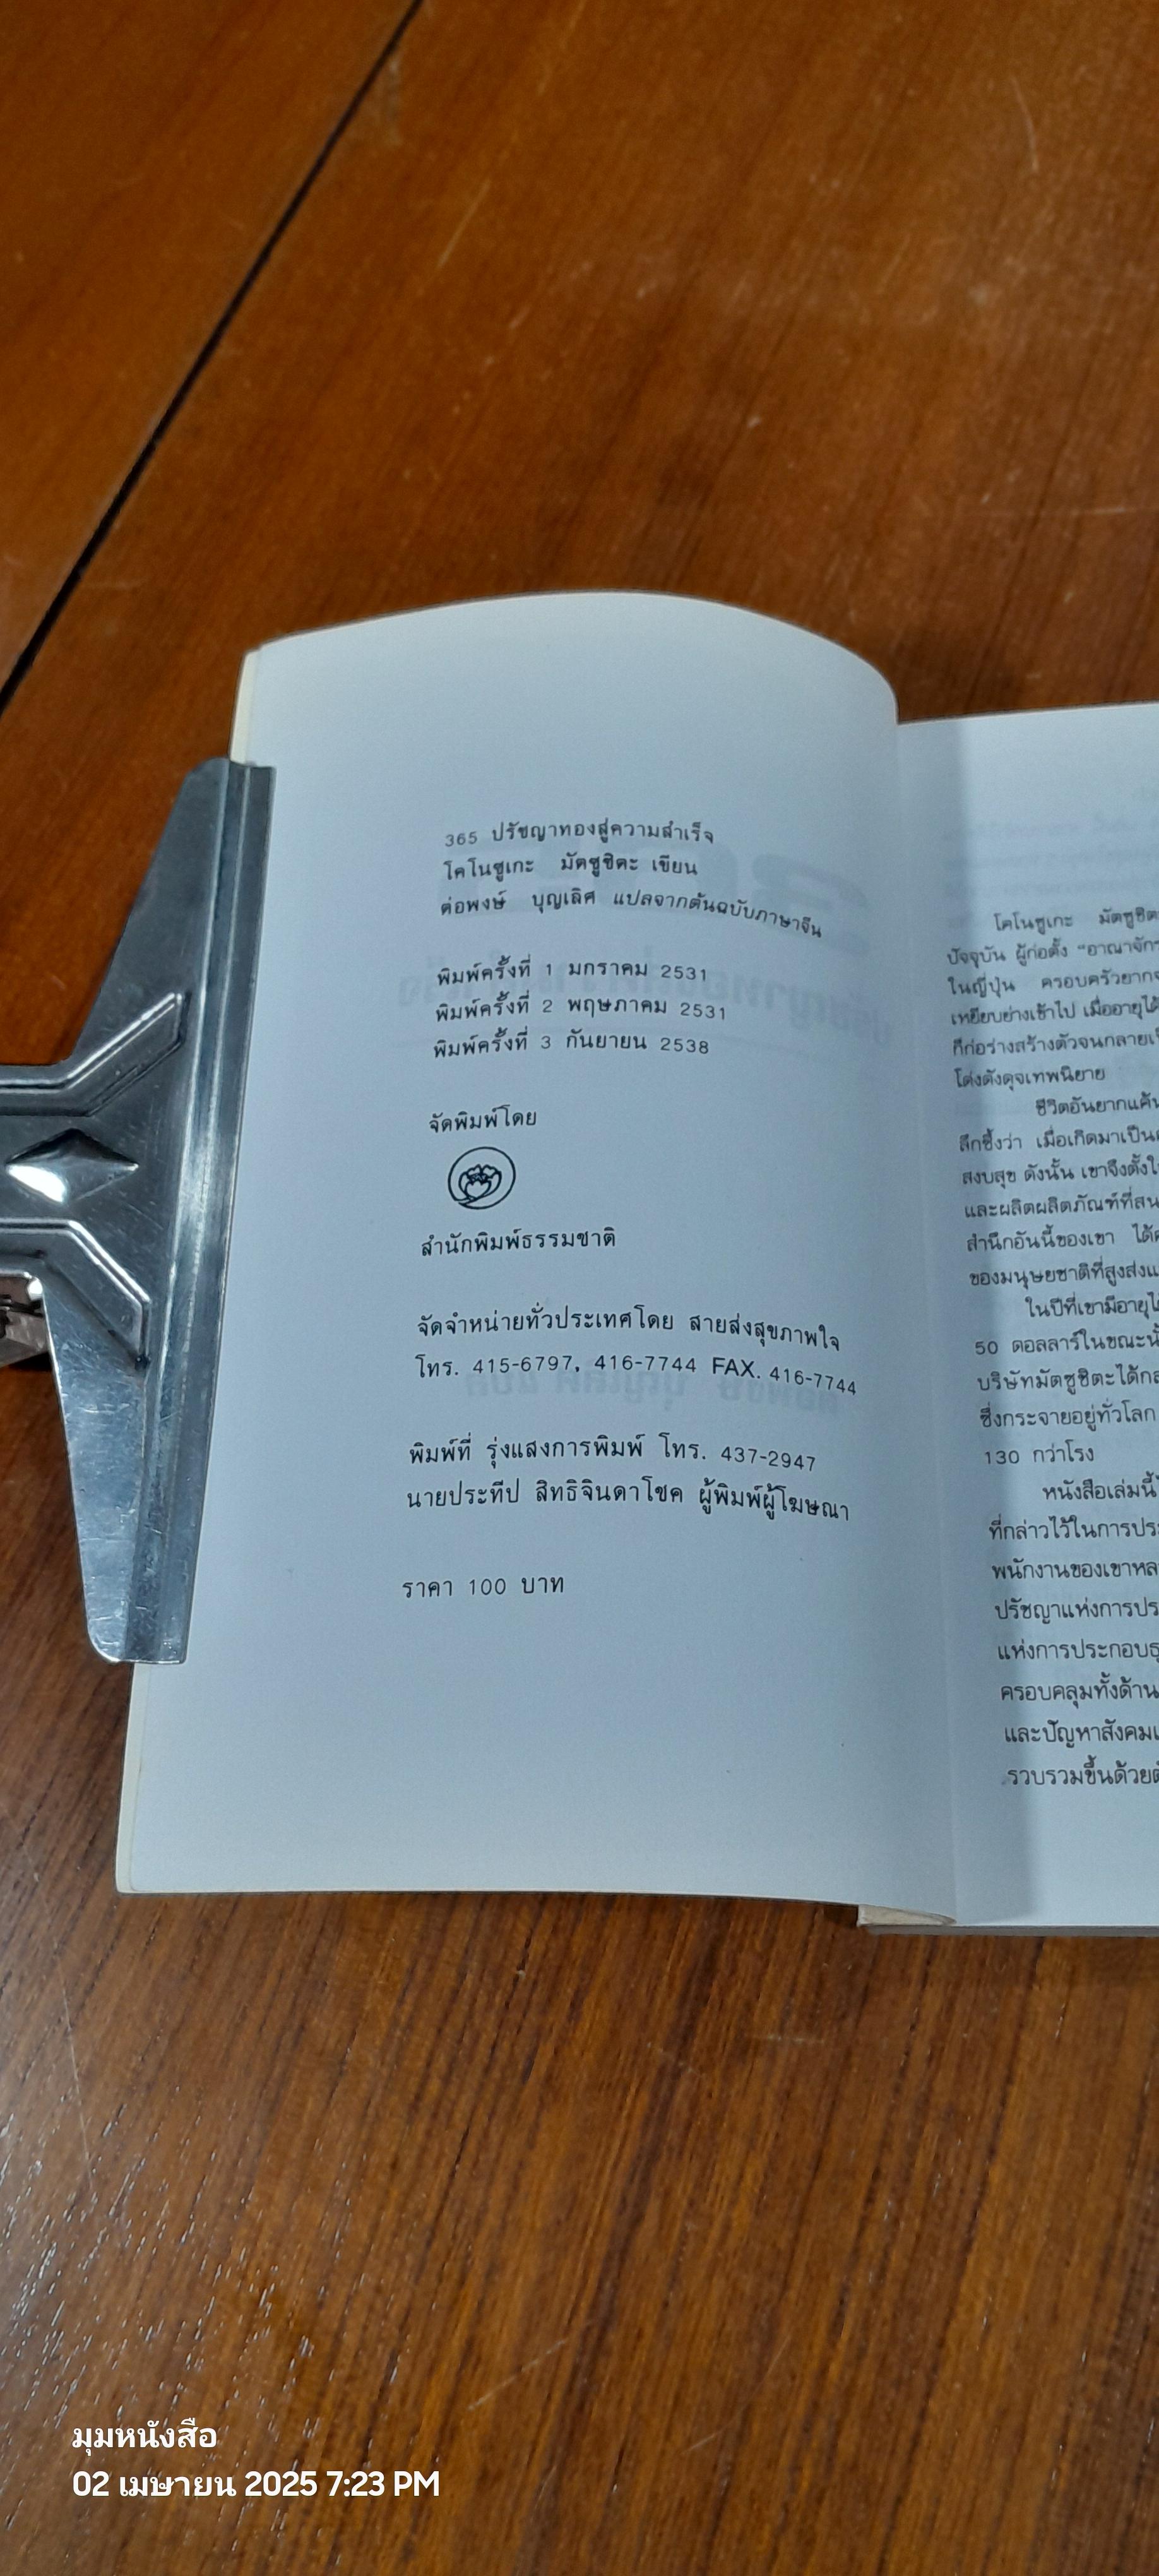 365 ปรัชญาทองสู่ความสำเร็จ
โคโนซูเกะ มัตซูชิตะ เขียน
ต่อพงษ์ บุญเลิศ แปลจากต้นฉบับภาษาจีน
พิมพ์ครั้งที่ 1 มกราคม 2531
พิมพ์ครั้งที่ 2 พฤษภาคม 2531
พิมพ์ครั้งที่ 3 กันยายน 2538
จัดพิมพ์โดย
สำนักพิมพ์ธรรมชาติ
จัดจำหน่ายทั่วประเทศโดย สายส่งสุขภาพใจ
โทร. 415-6797, 416-7744 FAX. 416-7744
พิมพ์ที่ รุ่งแสงการพิมพ์ โทร. 437-2947
นายประทีป สิทธิจินดาโชค ผู้พิมพ์ผู้โฆษณา
ราคา 100 บาท
โคโนซูเกะ มัตซูชิตะ
ปัจจุบัน ผู้ก่อตั้ง “อาณาจักร
ในญี่ปุ่น ครอบครัวยากจ
เหยียบย่างเข้าไป เมื่ออายุได้
ก็ก่อร่างสร้างตัวจนกลายเป็
โด่งดังดุจเทพนิยาย
ชีวิตอันยากแค้น
ลึกซึ้งว่า เมื่อเกิดมาเป็น
สงบสุข ดังนั้น เขาจึงตั้งใ
และผลิตผลิตภัณฑ์ที่สน
สำนึกอันนี้ของเขา ได้
ของมนุษยชาติที่สูงส่งแ
ในปีที่เขามีอายุได้
50 ดอลลาร์ในขณะนั้
บริษัทมัตซูชิตะได้กล
ซึ่งกระจายอยู่ทั่วโลก
130 กว่าโรง
หนังสือเล่มนี้
ที่กล่าวไว้ในการประ
พนักงานของเขาหล
ปรัชญาแห่งการปร
แห่งการประกอบธุ
ครอบคลุมทั้งด้าน
และปัญหาสังคม
รวบรวมขึ้นด้วยต
มุมหนังสือ
02 เมษายน 2025 7:23 PM